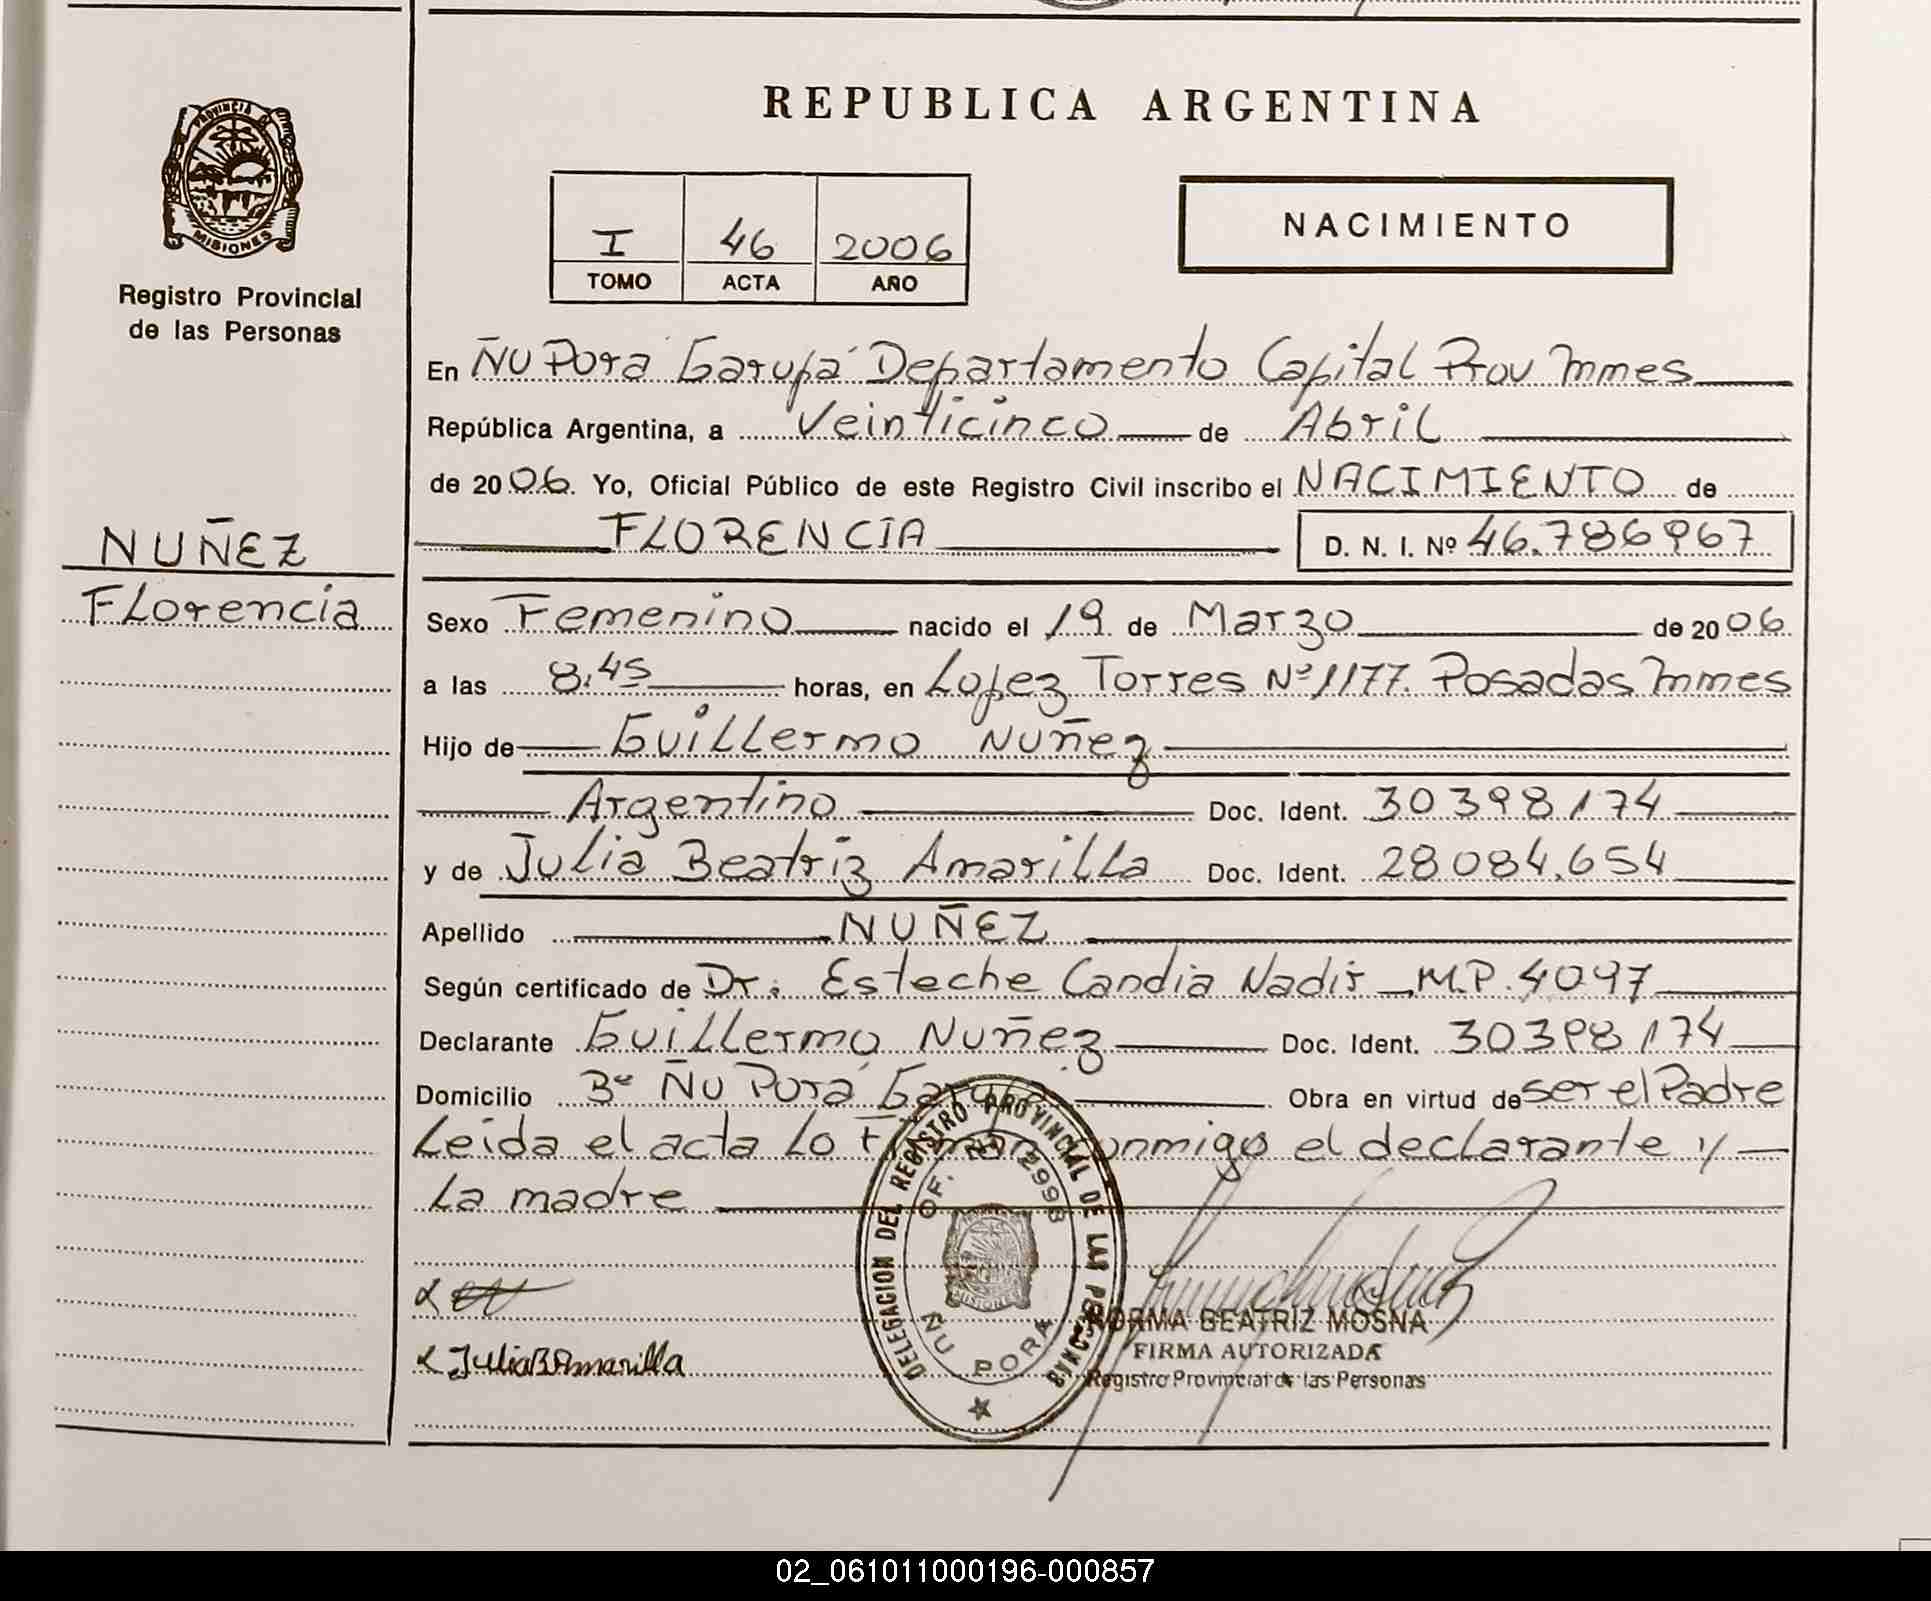 REPUBLICA ARGENTINA
PROVINCIA DE
MISIONES
Registro Provincial
de las Personas
I 46 2006
TOMO ACTA AÑO
NACIMIENTO
En ÑU Porá Garupá Departamento Capital Prov Mnes
República Argentina, a Veinticinco de Abril
de 2006. Yo, Oficial Público de este Registro Civil inscribo el NACIMIENTO de
FLORENCIA D. N. I. Nº 46.786967
NUÑEZ
Florencia
Sexo Femenino nacido el 19 de Marzo de 2006
a las 8.45 horas, en Lopez Torres Nº 1177. Posadas Mnes
Hijo de Guillermo Nuñez
Argentino Doc. Ident. 30398174
y de Julia Beatriz Amarilla Doc. Ident. 28084.654
Apellido NUÑEZ
Según certificado de Dr. Esteche Candia Nadir M.P. 4097
Declarante Guillermo Nuñez Doc. Ident. 30398174
Domicilio Bº Ñu Porá Garupá Obra en virtud de ser el Padre
Leida el acta lo firman conmigo el declarante y
la madre
DELEGACION DEL REGISTRO PROVINCIAL DE LAS PERSONAS
OF. Nº 2998
MISIONES
ÑU PORA
JuliaBAmarilla
NORMA BEATRIZ MOSNA
FIRMA AUTORIZADA
Registro Provincial de las Personas
02_061011000196-000857